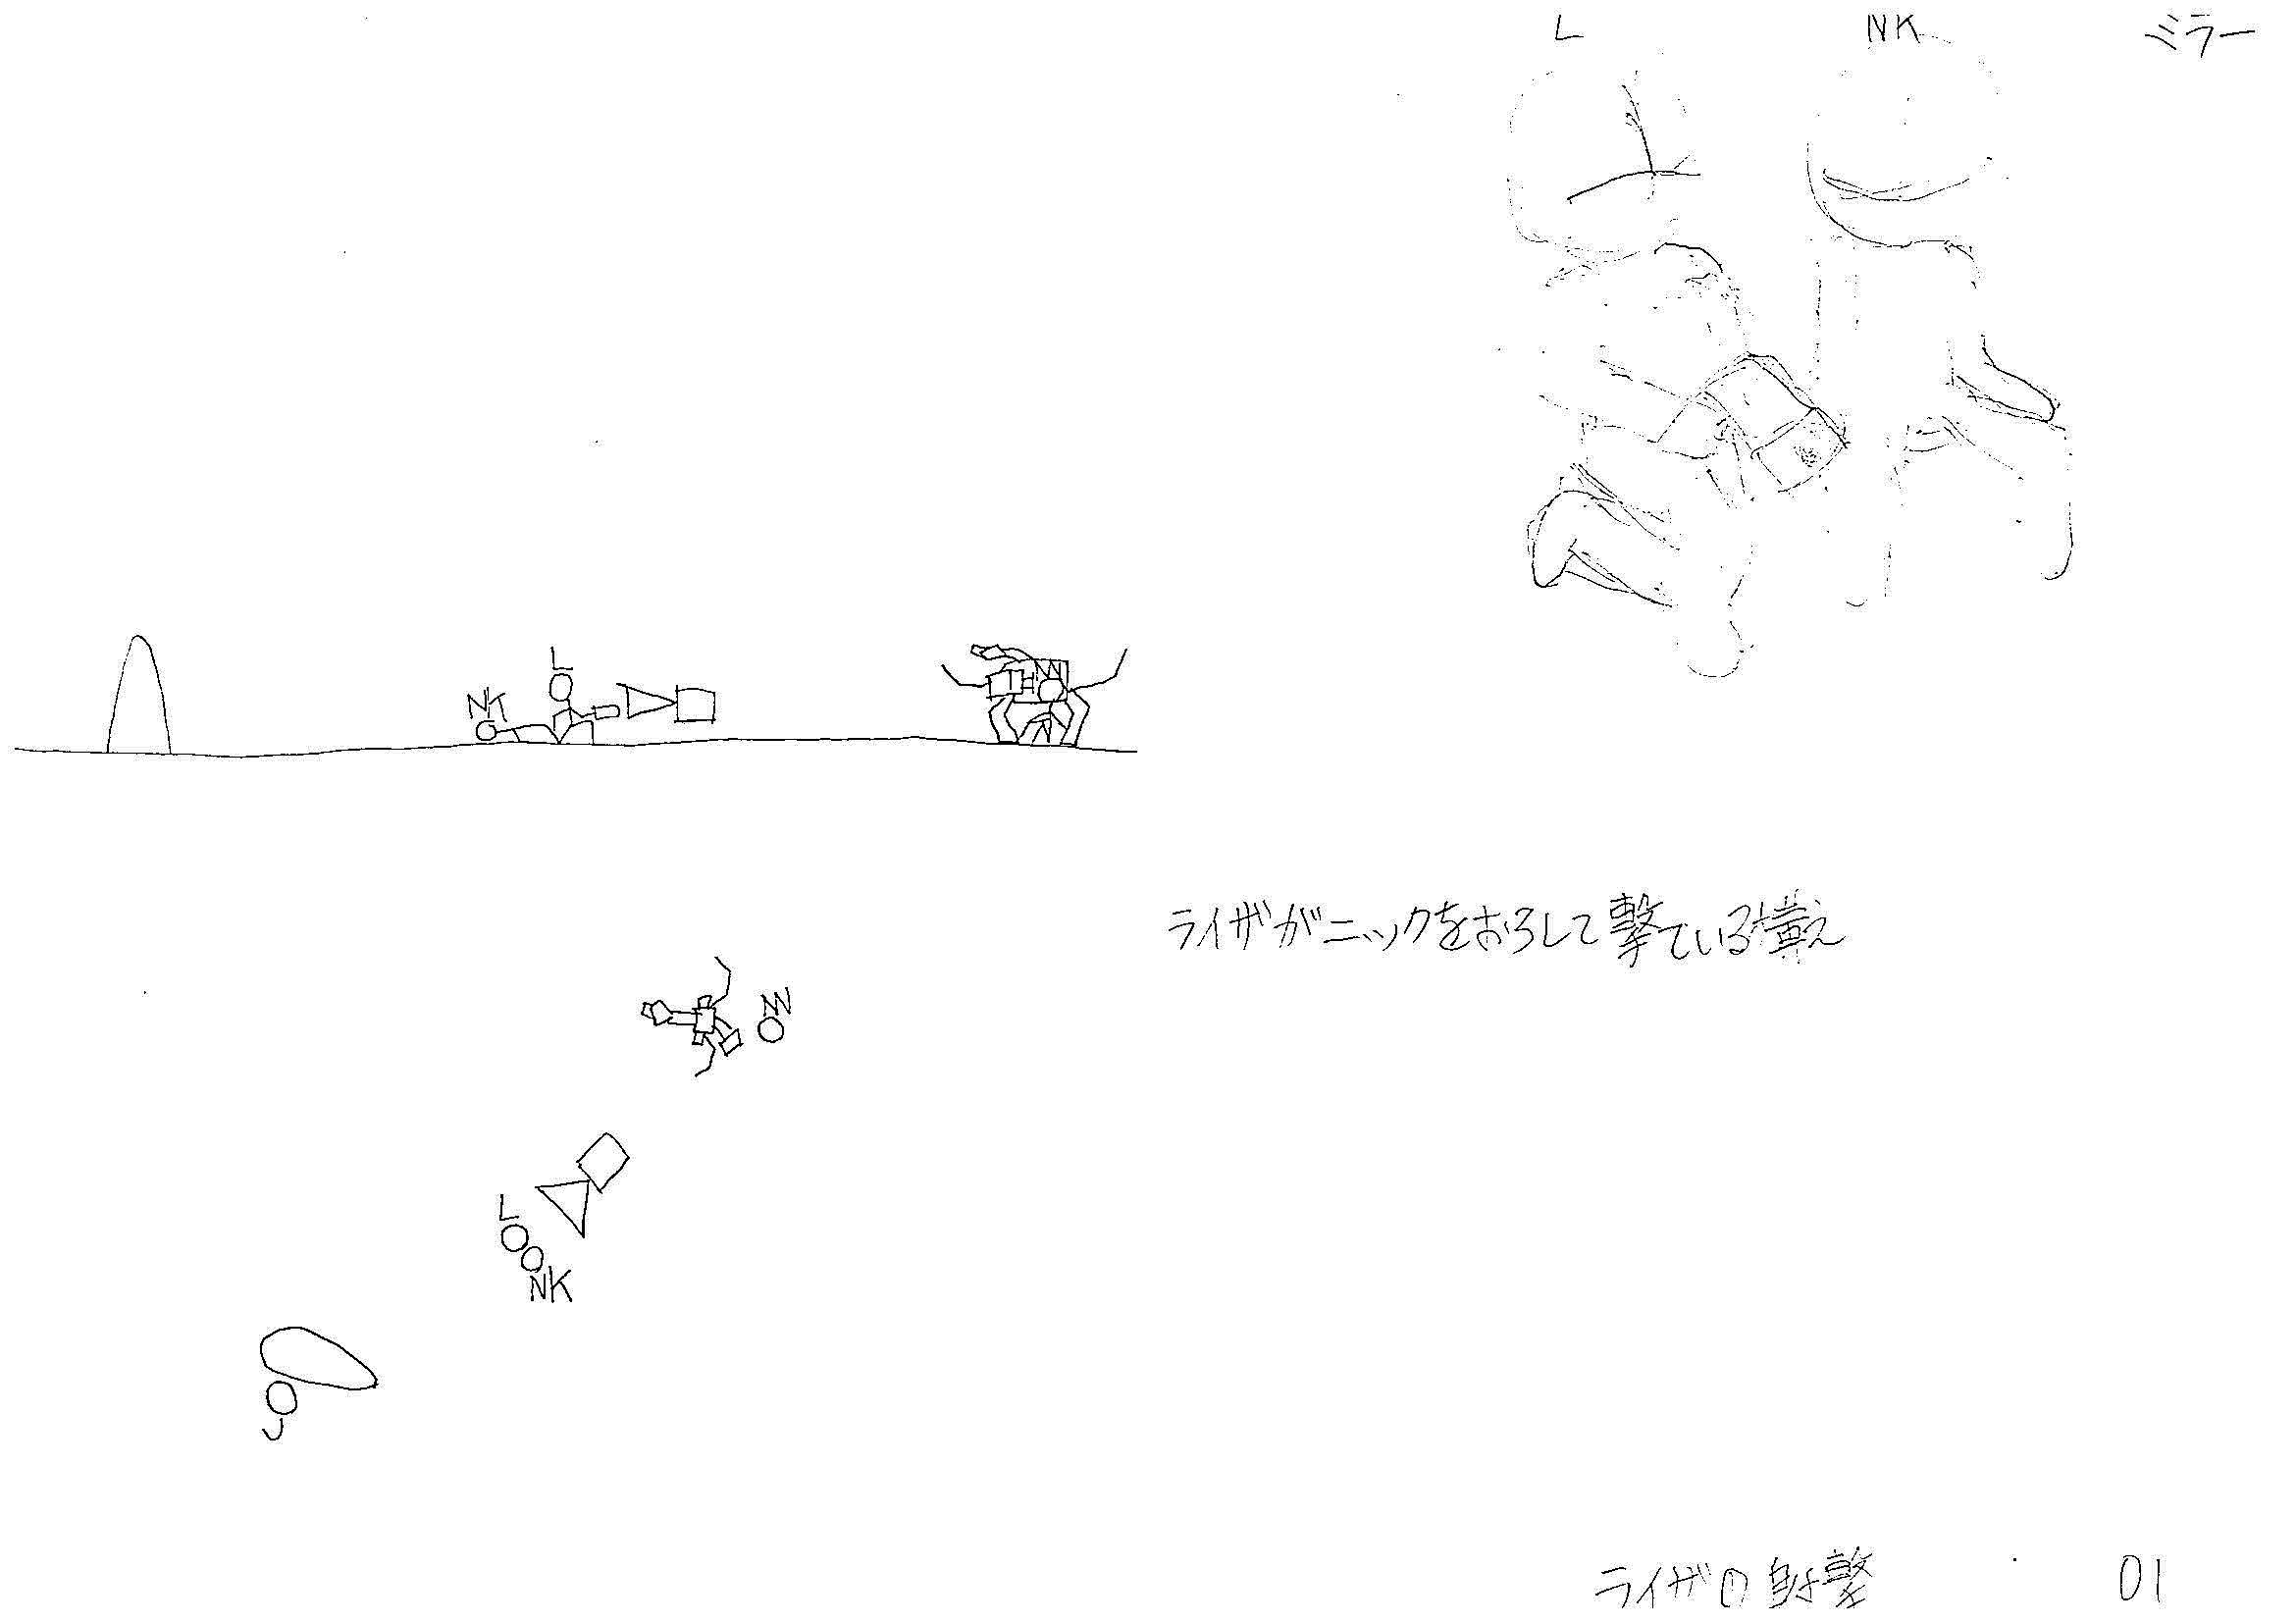 L NK ミラー
L
NK
N
ライザがニックをおろして撃ている構え
N
L
NK
J
ライザの射撃 01